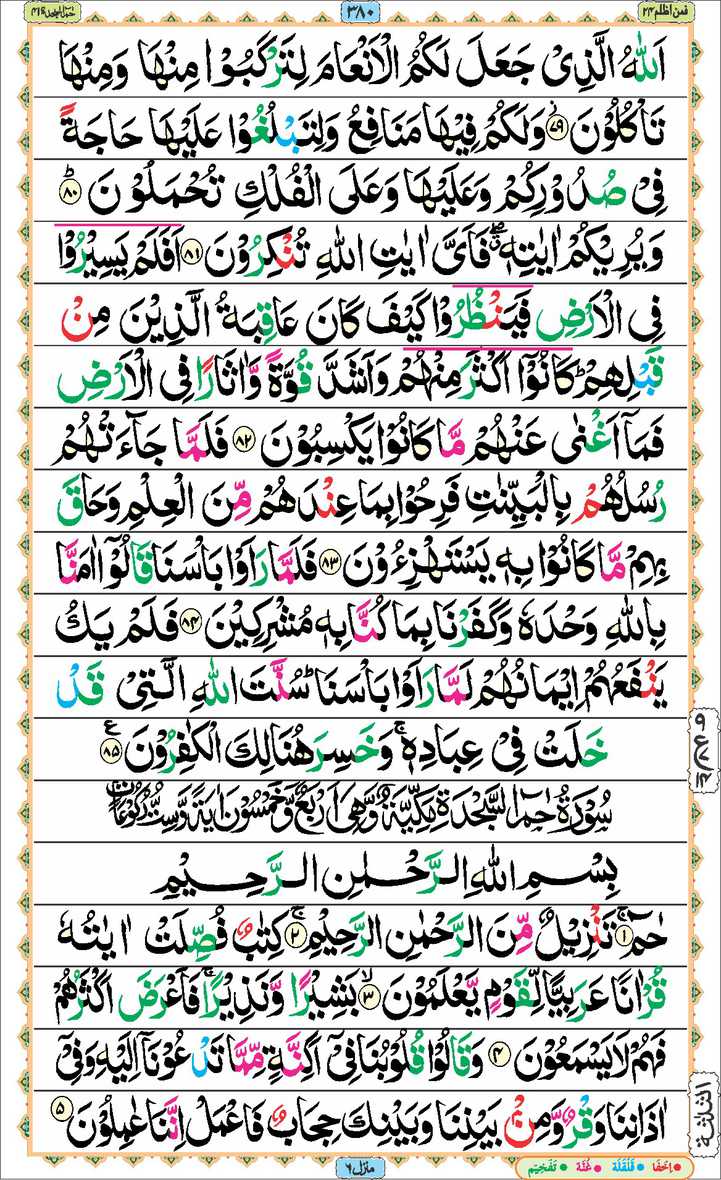 فمن اظلم ٢٤
٣٨٠
حٰمٓ السجدة ٤١
اَللّٰهُ الَّذِىْ جَعَلَ لَكُمُ الْاَنْعَامَ لِتَرْكَبُوْا مِنْهَا وَمِنْهَا
تَاْكُلُوْنَ ۟ۙ‏﴿۷۹﴾ وَلَكُمْ فِيْهَا مَنَافِعُ وَلِتَبْلُغُوْا عَلَيْهَا حَاجَةً
فِىْ صُدُوْرِكُمْ وَعَلَيْهَا وَعَلَى الْفُلْكِ تُحْمَلُوْنَ ؕ‏﴿۸۰﴾
وَيُرِيْكُمْ اٰيٰتِهٖ ۖۗ فَاَىَّ اٰيٰتِ اللّٰهِ تُنْكِرُوْنَ‏﴿۸۱﴾ اَفَلَمْ يَسِيْرُوْا
فِى الْاَرْضِ فَيَنْظُرُوْا كَيْفَ كَانَ عَاقِبَةُ الَّذِيْنَ مِنْ
قَبْلِهِمْؕ كَانُوْۤا اَكْثَرَ مِنْهُمْ وَاَشَدَّ قُوَّةً وَّاٰثَارًا فِى الْاَرْضِ
فَمَاۤ اَغْنٰى عَنْهُمْ مَّا كَانُوْا يَكْسِبُوْنَ‏﴿۸۲﴾ فَلَمَّا جَآءَتْهُمْ
رُسُلُهُمْ بِالْبَيِّنٰتِ فَرِحُوْا بِمَا عِنْدَهُمْ مِّنَ الْعِلْمِ وَحَاقَ
بِهِمْ مَّا كَانُوْا بِهٖ يَسْتَهْزِءُوْنَ‏﴿۸۳﴾ فَلَمَّا رَاَوْا بَاْسَنَا قَالُوْۤا اٰمَنَّا
بِاللّٰهِ وَحْدَهٗ وَكَفَرْنَا بِمَا كُنَّا بِهٖ مُشْرِكِيْنَ‏﴿۸۴﴾ فَلَمْ يَكُ
يَنْفَعُهُمْ اِيْمَانُهُمْ لَمَّا رَاَوْا بَاْسَنَاؕ سُنَّتَ اللّٰهِ الَّتِىْ قَدْ
خَلَتْ فِىْ عِبَادِهٖۚ وَخَسِرَ هُنَالِكَ الْكٰفِرُوْنَ‏﴿۸۵﴾
سُوْرَةُ حٰمٓ السَّجْدَةِ مَكِّيَّةٌ وَّهِىَ اَرْبَعٌ وَّخَمْسُوْنَ اٰيَةً وَّسِتُّ رُكُوْعَاتٍ
بِسْمِ اللّٰهِ الرَّحْمٰنِ الرَّحِيْمِ
حٰمٓ ۚ‏﴿۱﴾ تَنْزِيْلٌ مِّنَ الرَّحْمٰنِ الرَّحِيْمِ ۚ‏﴿۲﴾ كِتٰبٌ فُصِّلَتْ اٰيٰتُهٗ
قُرْاٰنًا عَرَبِيًّا لِّقَوْمٍ يَّعْلَمُوْنَ ۙ‏﴿۳﴾ بَشِيْرًا وَّنَذِيْرًا ۚ فَاَعْرَضَ اَكْثَرُهُمْ
فَهُمْ لَا يَسْمَعُوْنَ‏﴿۴﴾ وَقَالُوْا قُلُوْبُنَا فِىْۤ اَكِنَّةٍ مِّمَّا تَدْعُوْنَاۤ اِلَيْهِ وَفِىْۤ
اٰذَانِنَا وَقْرٌ وَّمِنْۢ بَيْنِنَا وَبَيْنِكَ حِجَابٌ فَاعْمَلْ اِنَّنَا عٰمِلُوْنَ‏﴿۵﴾
الثلثة
منزل ٦
اِخفَا • قَلقَلَة • غُنَّة • تَفْخِيْم